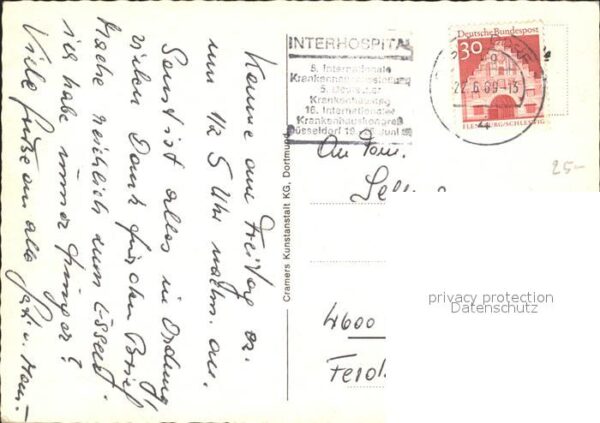 Komme am Freitag ca.
um 1/2 5 Uhr nachm. an.
Sonst ist alles in Ordnung,
vielen Dank für den Brief
reichlich zum Essen.
ich habe immer Hunger?
Viele Grüße an alle
Cramers Kunstanstalt KG, Dortmund
INTERHOSPITAL
5. Internationale
Krankenhausausstellung
5. Deutscher
Krankenhaustag
16. Internationaler
Krankenhauskongreß
Düsseldorf 19.-25. Juni 69
Deutsche Bundespost
30
FLENSBURG/SCHLESWIG
22.6.69-13
An Fam.
4600
25-
privacy protection
Datenschutz